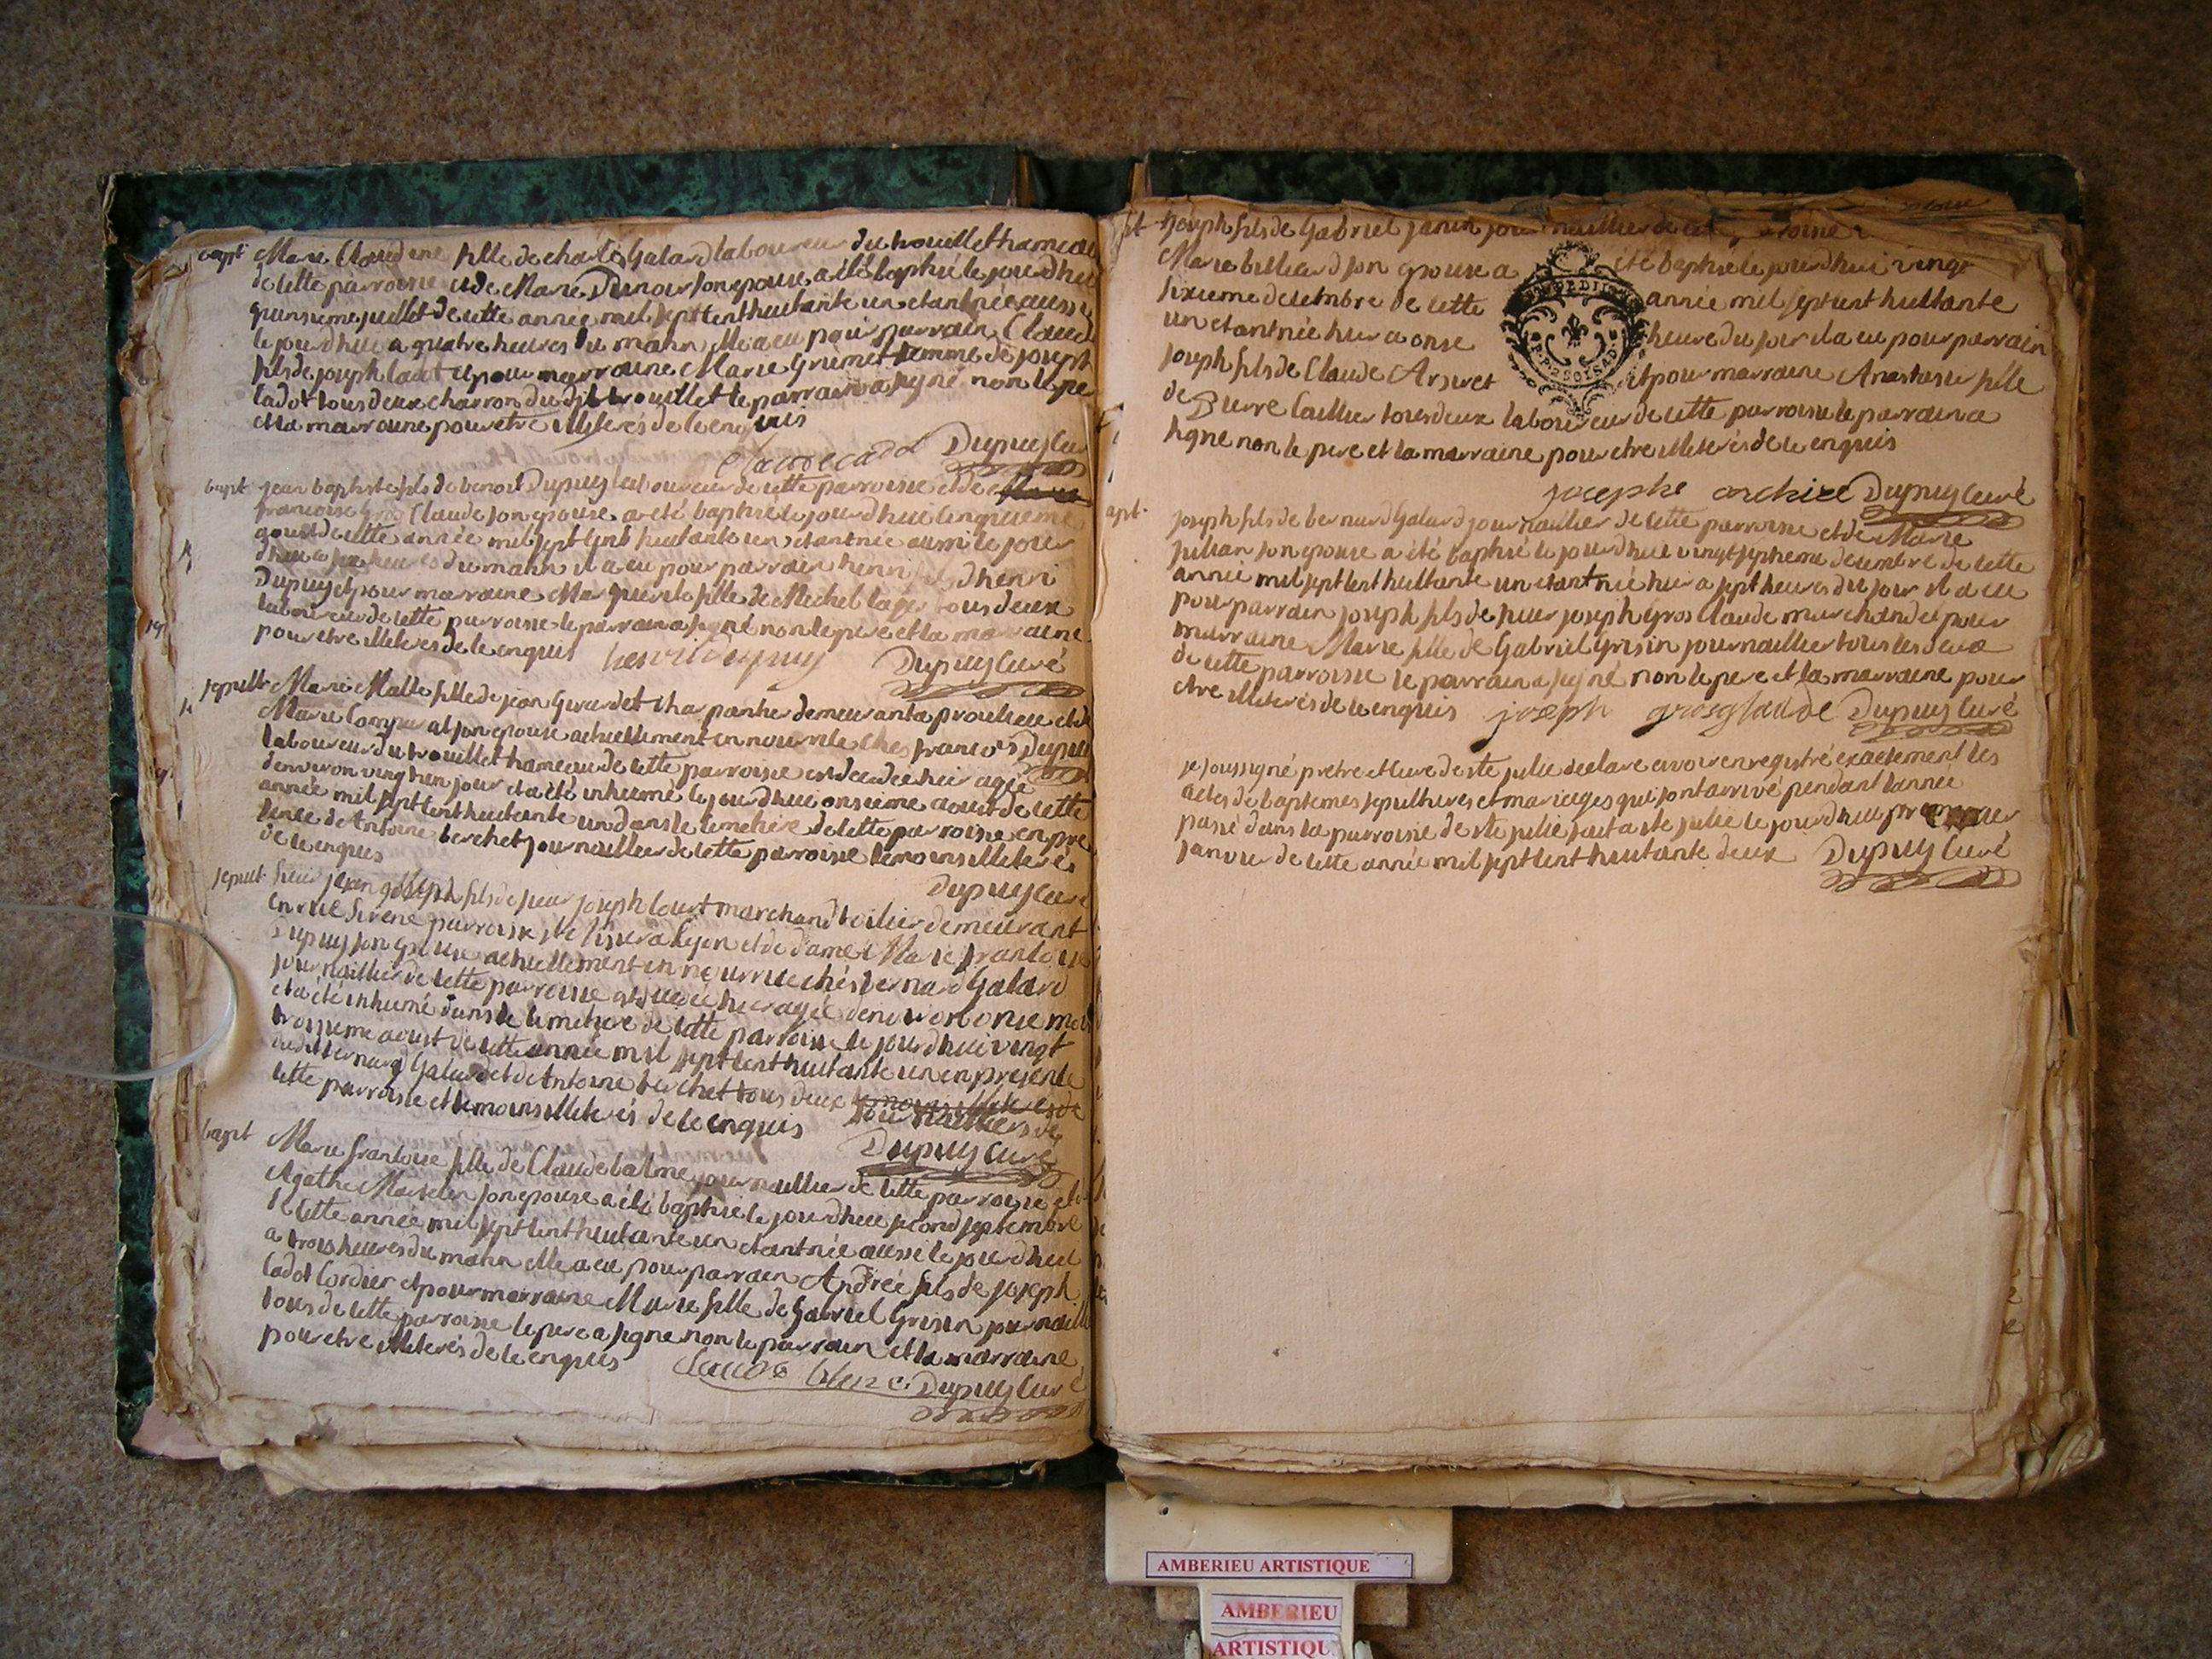 bapt Marie Claudine fille de charles Galard laboureur du trouillet hameau
de cette parroisse et de Marie Dunoir son epouse a été baptisé le jourd'hui
quinsieme juillet de cette année mil sept cent huitante un etant née aussi
le jourd'hui a quatre heures du matin elle a eu pour parrain Claude
fils de joseph Cadot et pour marraine Marie Grumet femme de joseph
Cadot tous deux charrons dudit trouillet le parrain a signé non le pe
et la marraine pour etre illiterés de ce enquis
claude cadot Dupuy Curé
bapt jean baptiste fils de benoit Dupuy laboureur de cette parroisse et de
francoise gros Claude son epouse a été baptisé le jourd'hui cinquieme
aoust de cette année mil sept cent huitante un etant née aussi le jour
d'hui a six heures du matin il a eu pour parrain henri fils d'henri
Dupuy et pour marraine Marguerite fille de Michel tous deux
laboureur de cette parroisse le parrain a signé non le pere et la marraine
pour etre illiteres de ce enquis henri dupuy Dupuy Curé
sepult Marie Matte fille de jean Girardet charpantier demeurant a et de
Marie son epouse actuellement en nourrice ches francois Dupuy
laboureur du trouillet hameau de cette parroisse est decedée hier agée
denviron vingt un jour et a été inhumé le jourd'hui onsieme aoust de cette
année mil sept cent huitante un dans le cimetiere de cette parroisse en pre
sence de Antoine berchet journaillier de cette parroisse temoins illiterés
de ce enquis
Dupuy Curé
sepult jean joseph fils de sieur joseph Court marchand toilier demeurant
en rue Sirene parroisse st Nisier a Lyon et de dame Marie francoise
Dupuy son epouse actuellement en nourrice chés bernard Galard
journaillier de cette parroisse est decedé hier agée denviron onse mois
et a été inhumé dans le cimetiere de cette parroisse le jourd'hui vingt
troisieme aoust de cette année mil sept cent huitante un en presence
dudit bernard Galard et de Antoine berchet tous deux temoins illiteres de
journailliers de
cette parroisse et temoins illiterés de ce enquis
Dupuy Curé
bapt Marie francoise fille de Claude balme journaillier de cette parroisse et
Agathe son epouse a été baptisé le jourd'hui second septembre
de cette année mil sept cent huitante un etant née aussi le jourd'hui
a trois heures du matin elle a eu pour parrain Andrée fils de joseph
Cadot Cordier et pour marraine Marie fille de Gabriel Grisin journaill
tous de cette parroisse le pere a signe non le parrain et la marraine
pour etre illiterés de ce enquis Dupuy Curé
joseph fils de Gabriel janin journaillier de cette
Marie billiard son epouse a été baptisé le jourd'hui vingt
sixieme decembre de cette année mil sept cent huittante
un etant née hier a onse heure du jour il a eu pour parrain
joseph fils de Claude et pour marraine Anastasie fille
de Pierre Caillier tous deux laboureur de cette parroisse le parrain a
signe non le pere et la marraine pour etre illiterés de ce enquis
Dupuy Curé
apt joseph fils de bernard Galard journailier de cette parroisse et de Marie
julian son epouse a été baptisé le jourd'hui vingt septieme decembre de cette
année mil sept cent huittante un etant née hier a sept heures du jour il a eu
pour parrain joseph fils de sieur joseph Gros Claude marchand et pour
marraine Marie fille de Gabriel Grisin journaillier tous les deux
de cette parroisse le parrain a signé non le pere et la marraine pour
etre illiterés de ce enquis joseph grosglaude Dupuy Curé
je soussigné pretre et Curé de ste julie declare avoir enregistré exactement les
actes de baptemes sepultures et mariages qui sont arrivé pendant l'année
passé dans la parroisse de ste julie fait a ste julie le jourd'hui premier
janvier de cette année mil sept cent huitante deux Dupuy Curé
AMBERIEU ARTISTIQUE
AMBERIEU
ARTISTIQU